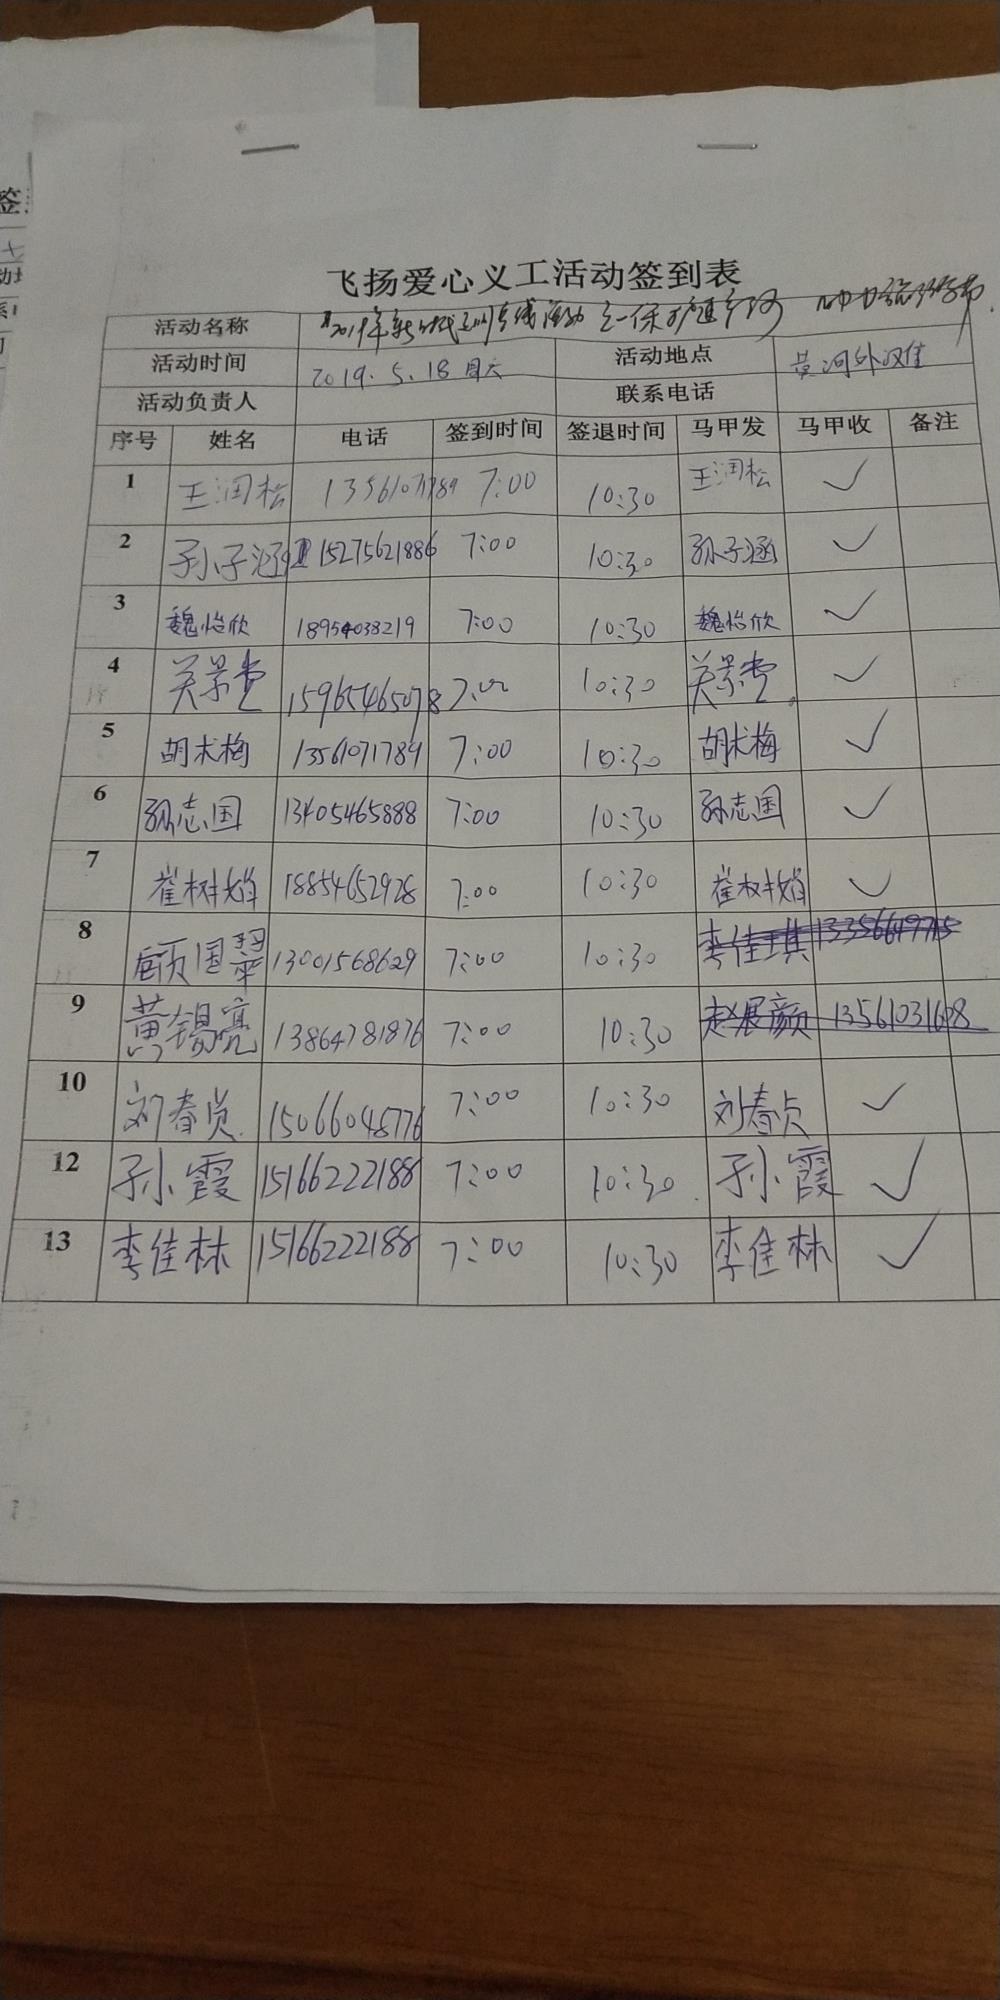 飞扬爱心义工活动签到表
活动名称 2019年新时代
活动时间 2019.5.18 周六 活动地点 黄河外
活动负责人 联系电话
序号 姓名 电话 签到时间 签退时间 马甲发 马甲收 备注
1 王润松 13561071789 7:00 10:30 王润松 ✓
2 孙子涵 15275621886 7:00 10:30 孙子涵 ✓
3 魏怡欣 18954038219 7:00 10:30 魏怡欣 ✓
4 关景堂 15965465078 7:00 10:30 关景堂 ✓
5 胡术梅 13561071789 7:00 10:30 胡术梅 ✓
6 孙志国 13405465888 7:00 10:30 孙志国 ✓
7 崔树娟 18854652928 7:00 10:30 崔树娟 ✓
8 国翠 13001568629 7:00 10:30 李佳琪
9 黄锡亮 13864781876 7:00 10:30 赵展颜
10 刘春贞 15066048776 7:00 10:30 刘春贞 ✓
12 孙霞 15166222188 7:00 10:30 孙霞 ✓
13 李佳林 15166222188 7:00 10:30 李佳林 ✓